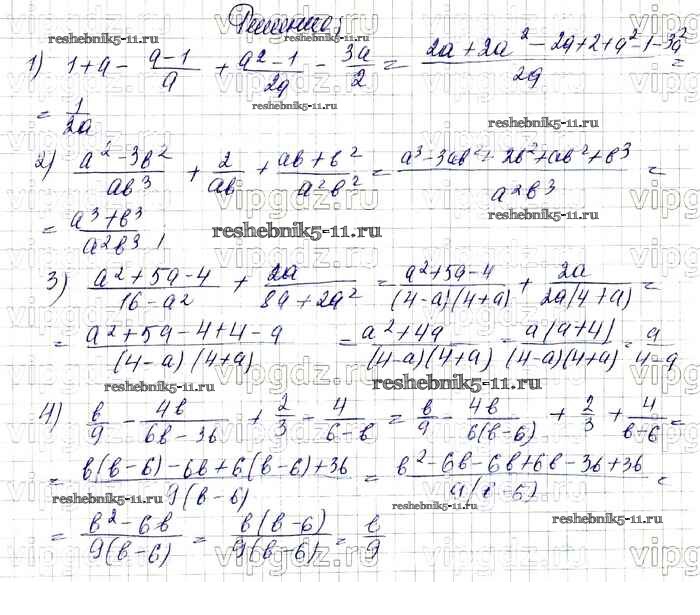 Решение:
1) 1+a - (a-1)/a + (a²-1)/(2a) - 3a/2 = (2a+2a²-2a+2+a²-1-3a²)/(2a) =
= 1/(2a)
2) (a²-3b²)/(ab³) + 2/(ab) + (ab+b²)/(a²b²) = (a³-3ab²+2b²+ab²+b³)/(a²b³) =
= (a³+b³)/(a²b³)
3) (a²+5a-4)/(16-a²) + 2a/(8a+2a²) = (a²+5a-4)/((4-a)(4+a)) + 2a/(2a(4+a)) =
= (a²+5a-4+4-a)/((4-a)(4+a)) = (a²+4a)/((4-a)(4+a)) = a(a+4)/((4-a)(4+a)) = a/(4-a)
4) b/9 - 4b/(6b-36) + 2/3 - 4/(6-b) = b/9 - 4b/(6(b-6)) + 2/3 + 4/(b-6) =
= (b(b-6)-6b+6(b-6)+36)/(9(b-6)) = (b²-6b-6b+6b-36+36)/(9(b-6)) =
= (b²-6b)/(9(b-6)) = b(b-6)/(9(b-6)) = b/9
reshebnik5-11.ru
vipgdz.ru